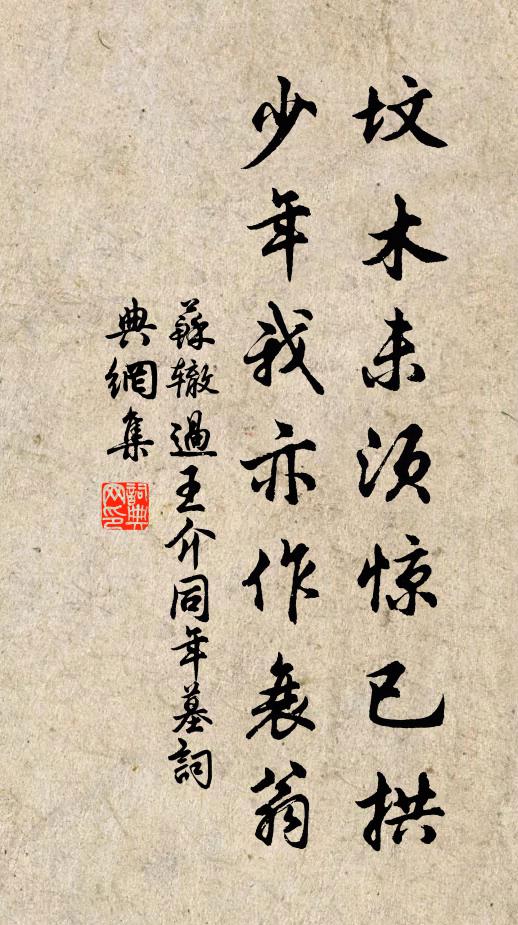 坟木未须惊已拱
少年我亦作衰翁
蘇辙過王介同年墓詞
典網集
詞典
网印